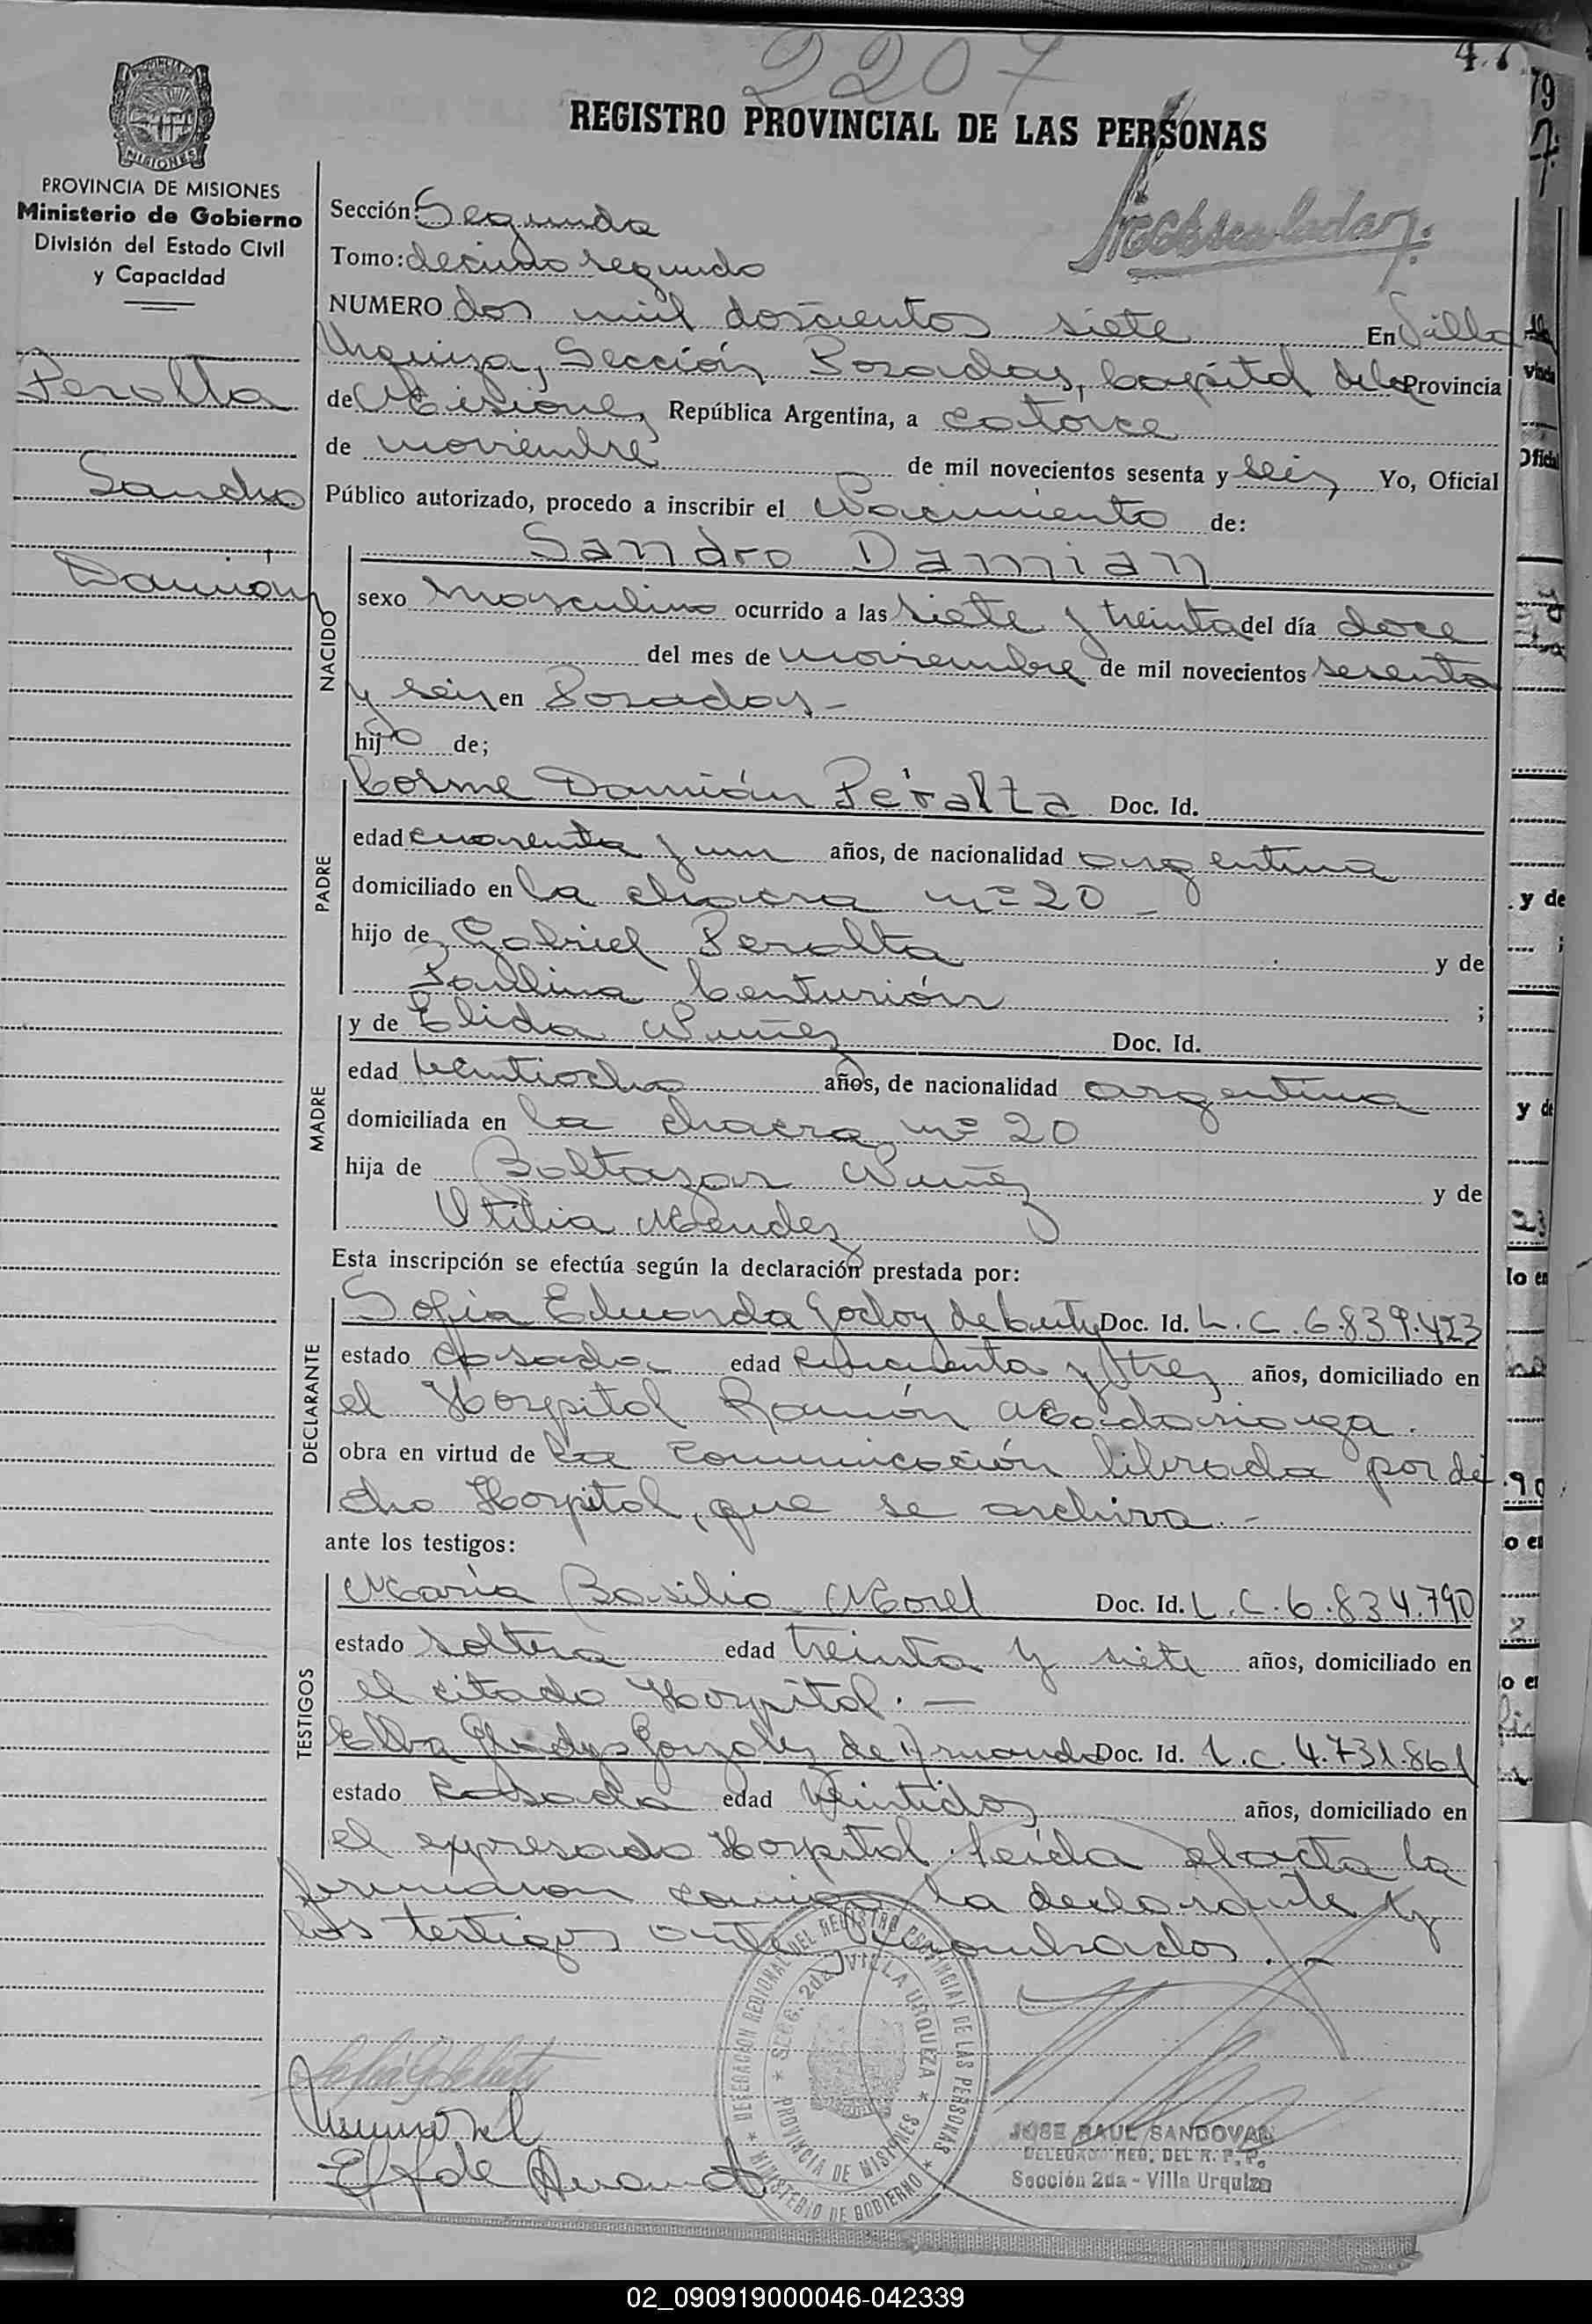 2207
REGISTRO PROVINCIAL DE LAS PERSONAS
PROVINCIA DE MISIONES
Ministerio de Gobierno
División del Estado Civil
y Capacidad
Peralta
Sandro
Damián
Sección: Segunda
Tomo: decimo segundo
NUMERO dos mil doscientos siete En Villa
Urquiza, Sección Posadas, Capital de la Provincia
de Misiones, República Argentina, a catorce
de noviembre de mil novecientos sesenta y seis Yo, Oficial
Público autorizado, procedo a inscribir el Nacimiento de:
NACIDO
Sandro Damian
sexo masculino ocurrido a las siete y treinta del día doce
del mes de noviembre de mil novecientos sesenta
y seis en Posadas-
hijo de;
PADRE
Cosme Damián Peralta Doc. Id.
edad cuarenta y un años, de nacionalidad argentina
domiciliado en la chacra nº 20 -
hijo de Gabriel Peralta y de
Paulina Centurión ;
MADRE
y de Elida Nuñez Doc. Id.
edad veintiocho años, de nacionalidad argentina
domiciliada en la chacra nº 20
hija de Baltazar Nuñez y de
Utilia Mendez
Esta inscripción se efectúa según la declaración prestada por:
DECLARANTE
Sofia Eduarda Godoy de Doc. Id. L.C. 6.839.423
estado casada edad cincuenta y tres años, domiciliado en
el Hospital Ramón Madariaga.
obra en virtud de la comunicación librada por di
cho Hospital, que se archiva.-
ante los testigos:
TESTIGOS
María Basilia Morel Doc. Id. L.C. 6.834.790
estado soltera edad treinta y siete años, domiciliado en
el citado Hospital.-
Elba Gladys Gonzalez de Doc. Id. L.C. 4.731.861
estado casada edad veintidos años, domiciliado en
el expresado Hospital. leída el acta la
firmaron conmigo la declarante y
los testigos ante nombrados.-
DELEGACION REGIONAL DEL REGISTRO PROVINCIAL DE LAS PERSONAS
MINISTERIO DE GOBIERNO
SECC. 2da VILLA URQUIZA
PROVINCIA DE MISIONES
JOSE RAUL SANDOVAL
DELEGADO REG. DEL R. P. P.
Sección 2da - Villa Urquiza
02_090919000046-042339